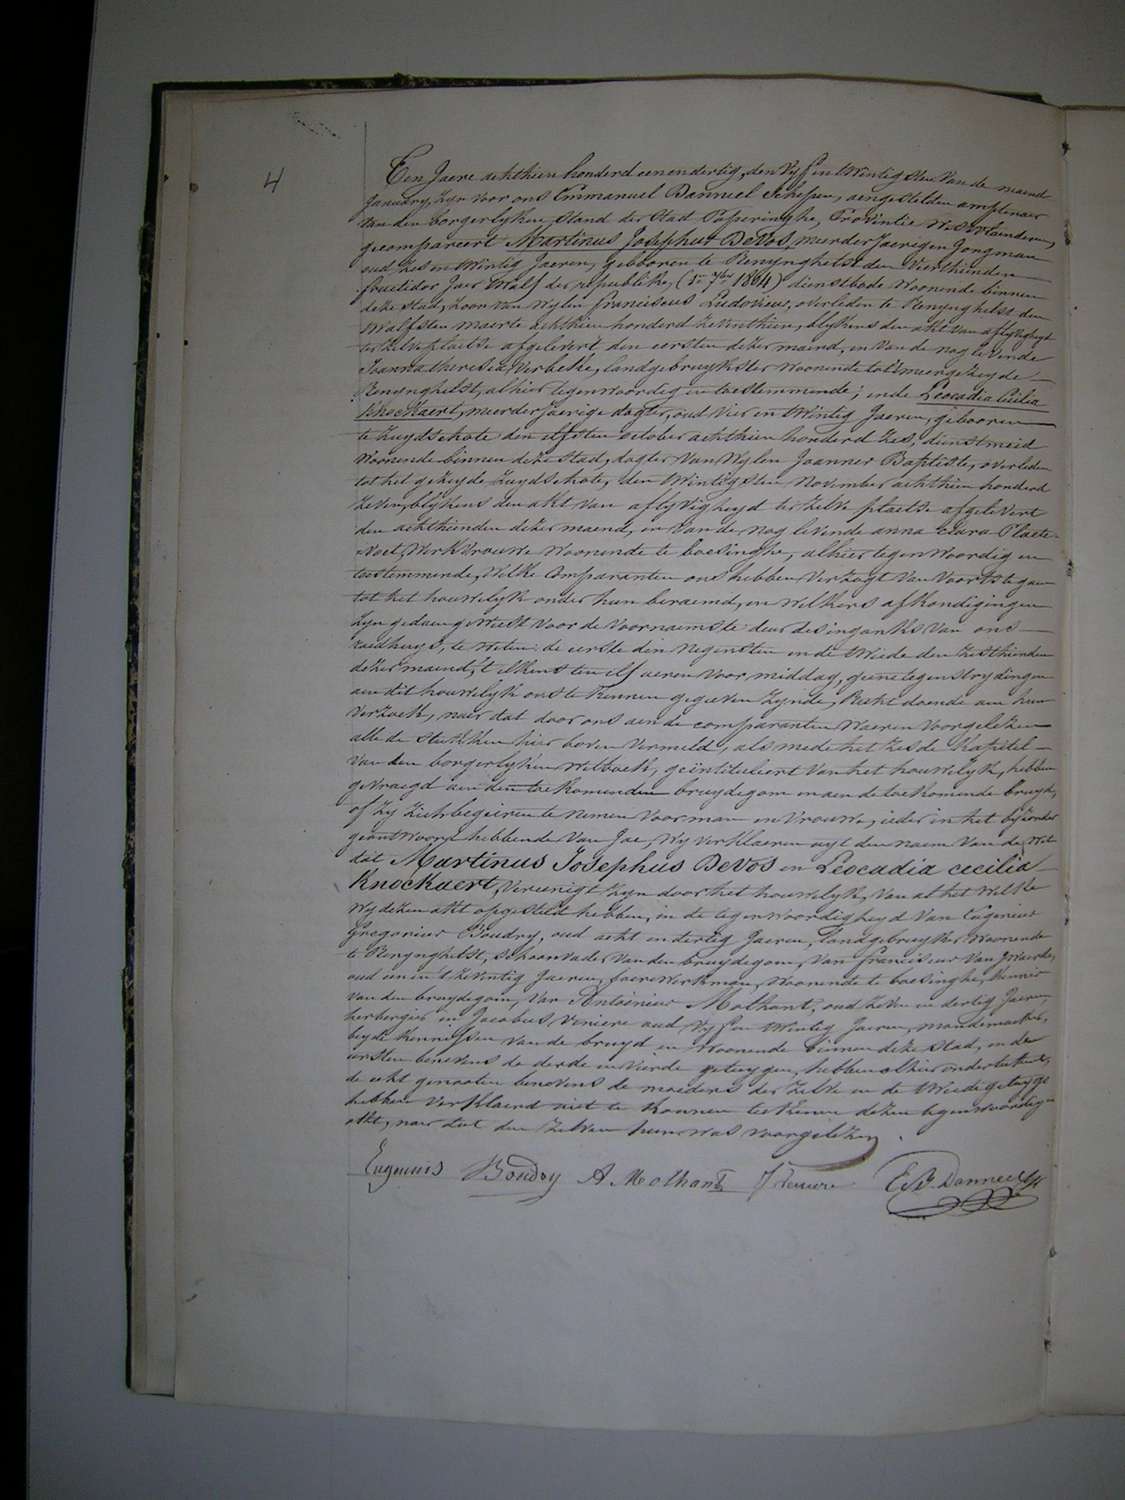 4
Een Jaere achthien honderd eenendertig, den Vyf en twintigsten Van de maend
January, Zyn voor ons Emmanuel Danneel Schepen, aengestelden amptenaer
Van den borgerlyken Stand der Stad Poperinghe, Provintie Westvlaenderen,
gecompareert Martinus Josephus DeVos, meerderjaerigen Jongman
oud Zes en twintig Jaeren, gebooren te Renynghelst den Vierthienden
fructidor Jaer twalf der republike, (1e 7ber 1804) dienstbode Woonende binnen
deze stad, Zoon van Wylen Franciscus Ludovicus, overleden te Renynghelst den
twalfsten maerte achthien honderd Zeventhien, blykens den akt van aflyvigheyd
ter Zelve plaetse afgelevert den eersten dezer maend, en van de nog levende
Joanna theresia Verbeke, landgebruykster Woonende tot meergezeyde
Renynghelst, alhier tegenwoordig en toestemmende; ende Leocadia Cecilia
Knockaert, meerderjaerige dogter, oud Vier en twintig Jaeren, gebooren
te Zuydschote den elfsten october achthien honderd Zes, dienstmeid
Woonende binnen deze stad, dogter Van Wylen Joannes Baptiste, overleden
tot het gezeyde Zuydschote, den twintigsten November achthien honderd
Zeven, blykens den akt Van aflyvigheyd ter Zelve plaetse afgelevert
den achthienden dezer maend, en Van de nog levende anna Clara Plaete-
voet, Werkvrouwe Woonende te boesinghe, alhier tegenwoordig en
toestemmende, Welke Comparanten ons hebben Verzogt Van Voorts te gaen
tot het houwelyk onder hun beraemd, en Welkers afkondigingen
Zyn gedaen geweest voor de Voornaemste deur des inganks Van ons
raedhuys, te Weten: de eerste den Negensten en de twede den Zesthienden
dezer maend, t'elkens ten elf ueren Voor middag, geene tegenstrydingen
aen dit houwelyk ons te Kennen gegeven Zynde, Recht doende aen hun
Verzoek, naer dat door ons aen de comparanten Waeren Voorgelezen
alle de stukken hier boven Vermeld, als mede het Zesde Kapitel
Van den borgerlyken Wetboek, geïntituleert Van het houwelyk, hebben
gevraegd aen den toekomenden bruydegom en aen de toekomende bruyd,
of Zy Zich begeiren te nemen Voor man en Vrouwe, ieder in het byzonder
geantwoord hebbende Van Jae, Wy verklaeren uyt den naem Van de Wet
dat Martinus Josephus DeVos en Leocadia cecilia
Knockaert, Vereenigt Zyn door het houwelyk, Van al het Welke
Wy dezen akt opgesteld hebben, in de tegenwoordigheyd Van Eugenius
Gregorius Boudry, oud acht en dertig Jaeren, landgebruyker Woonende
te Renynghelst, schoonvader Van den bruydegom, Van Franciscus Van
oud een en t'Zeventig Jaeren, Werkman, Woonende te boesinghe, Kennis
van den bruydegom, Van Antoenius Mothant, oud Zeven en dertig Jaeren,
herbergier en Jacobus Veniere oud Vyf en twintig Jaeren, mandemaeker,
beyde Kennissen van de bruyd en Woonende binnen deze stad, en de
eersten benevens de derde en Vierde getuygen, hebben alhier onderteekent,
de echt genooten benevens de moeders der Zelve en de twede getuyge
hebben Verklaerd niet te Konnen teekenen dezen tegenwoordigen
akt, naer dat den Zelven hun was Voorgelezen.
Eugenius Boudry A Mothant J Veniere E B. Danneel